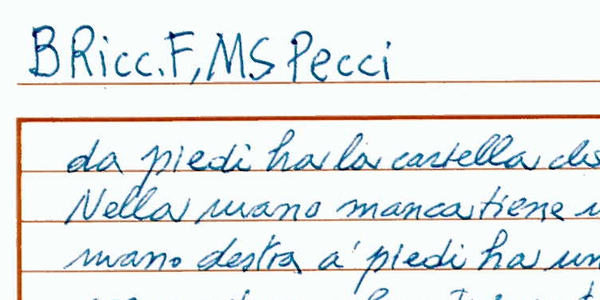 B Ricc. F, MS Pecci
da piedi ha la castella
Nella mano manca tiene
mano destra a' piedi ha un